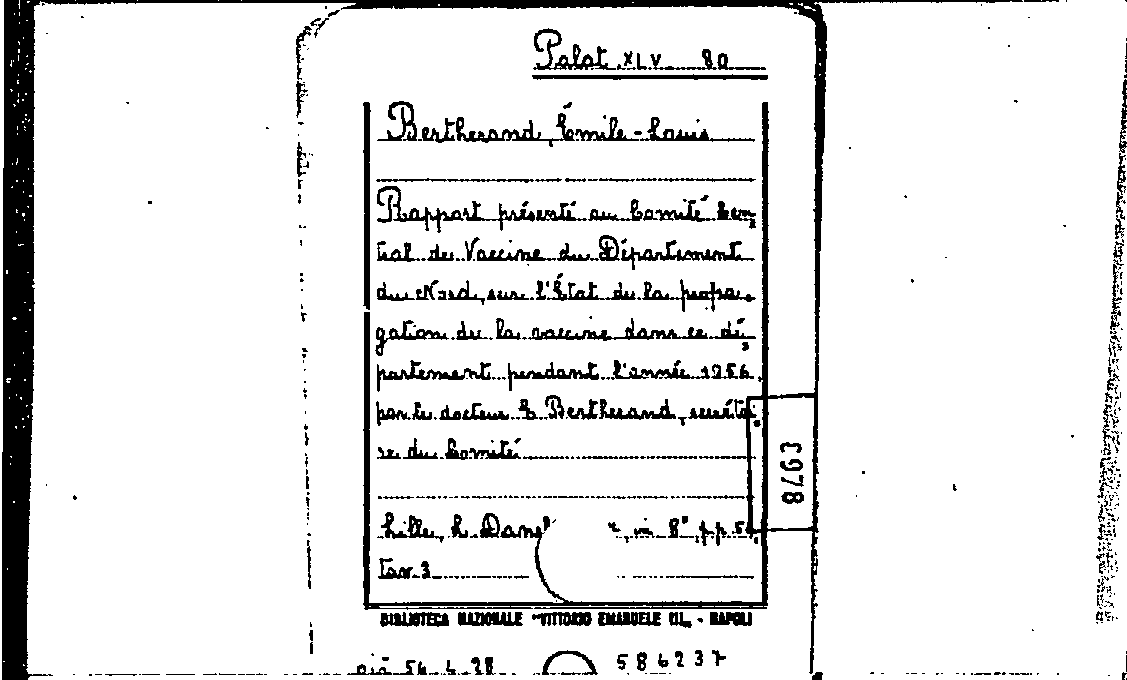 Palat. XLV 80
Bertherand, Émile-Louis
Rapport présenté au Comité Cen
tral de Vaccine du Département
du Nord, sur l'État de la propa-
gation de la vaccine dans ce dé
partement pendant l'année 1856
par le docteur E Bertherand, secrétai
re du Comité
Lille, L. Danel in 8° pp. 51
tav. 3
8793
BIBLIOTECA NAZIONALE "VITTORIO EMANUELE III" - NAPOLI
già 56.4.28 586237